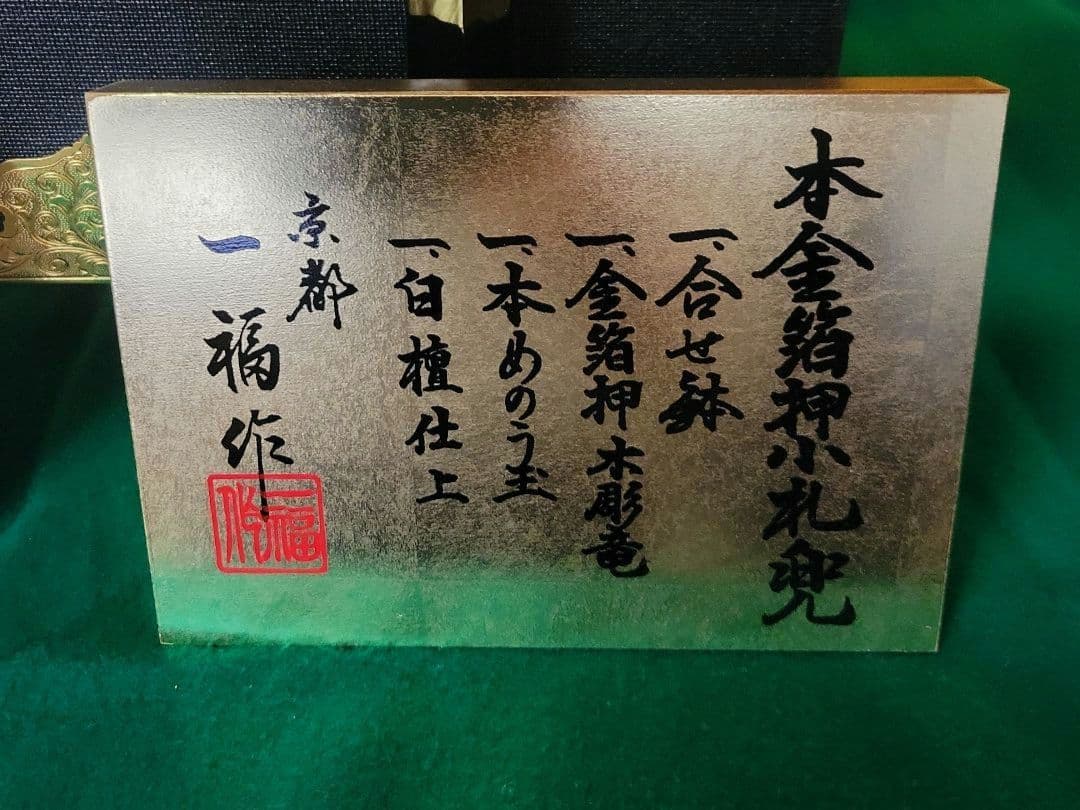 本金箔押小札兜
一、合せ鉢
一、金箔押木彫竜
一、本めのう玉
一、白檀仕上
京都
一福作